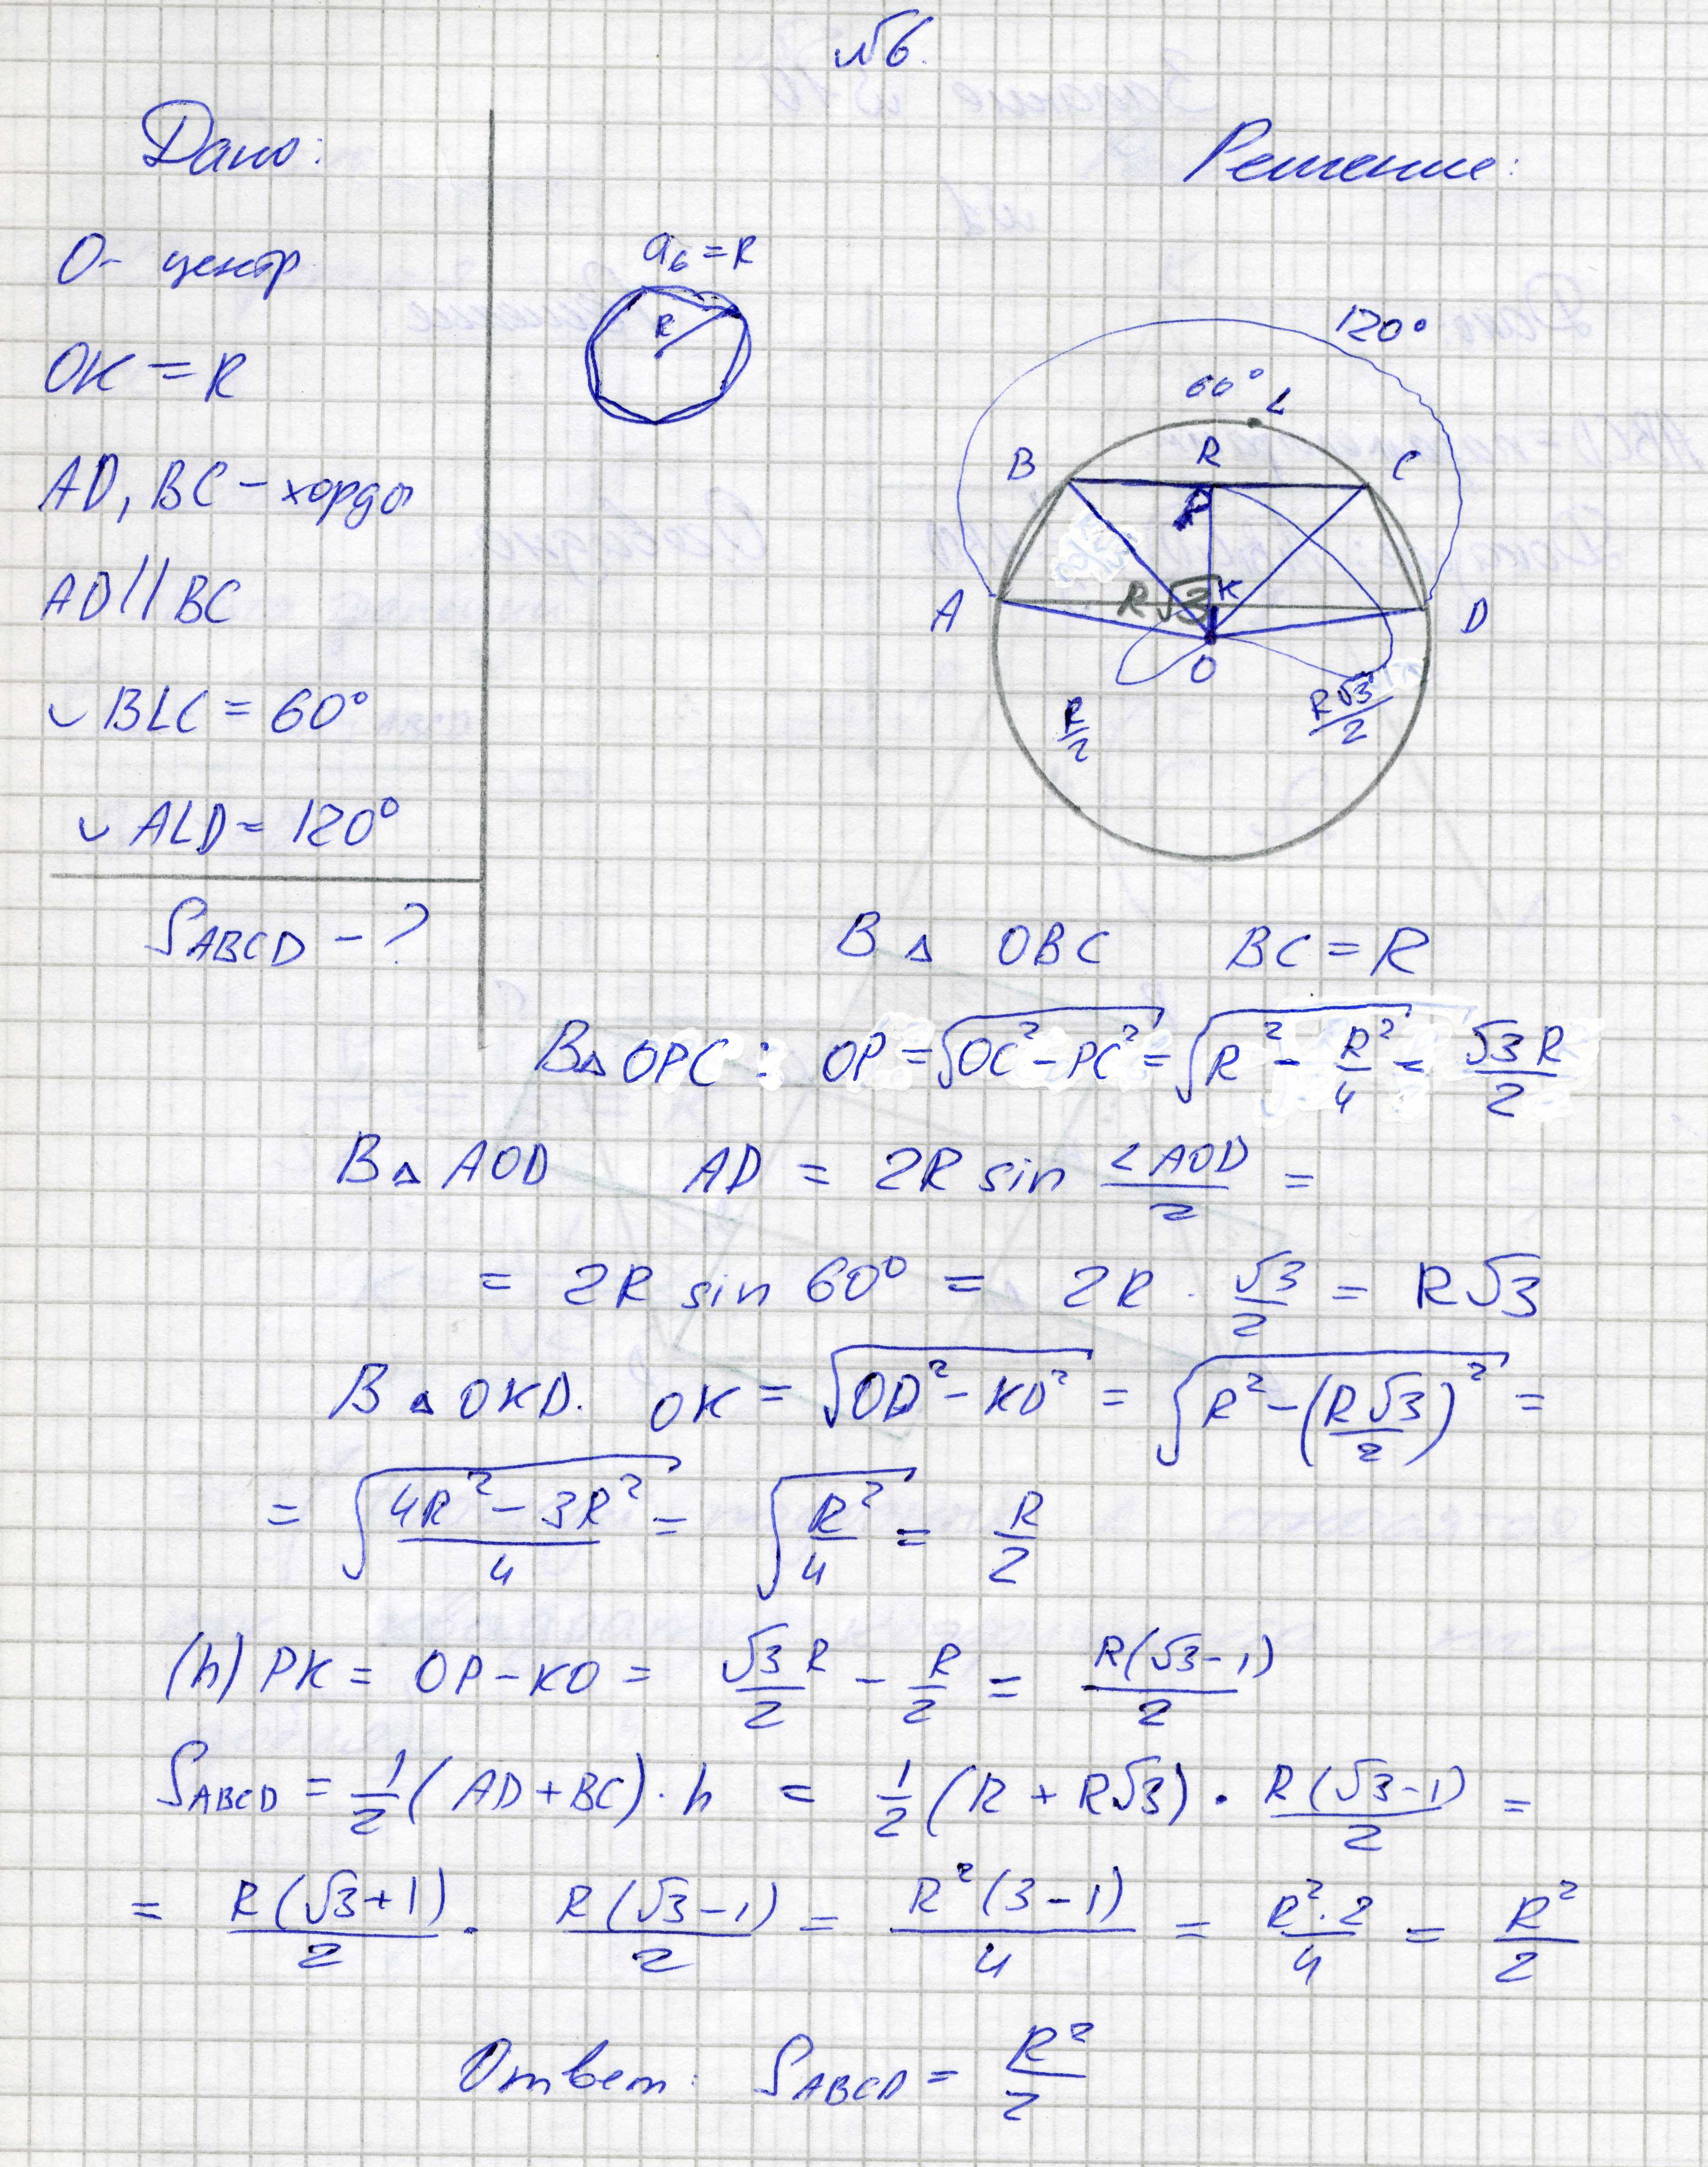 №6.
Дано:
Решение:
О- центр
OK = R
AD, BC - хорды
AD || BC
◡ BLC = 60°
◡ ALD = 120°
S_ABCD - ?
a₆ = R
R
120°
60° L
B R C
P
A R√3 K D
O
R/2
R√3/2
В △ OBC BC = R
В △ OPC : OP = √(OC² - PC²) = √(R² - R²/4) = √3R/2
В △ AOD AD = 2R sin ∠AOD/2 =
= 2R sin 60° = 2R · √3/2 = R√3
В △ OKD. OK = √(OD² - KD²) = √(R² - (R√3/2)²) =
= √((4R² - 3R²)/4) = √(R²/4) = R/2
(h) PK = OP - KO = √3R/2 - R/2 = R(√3-1)/2
S_ABCD = 1/2 (AD + BC) · h = 1/2 (R + R√3) · R(√3-1)/2 =
= R(√3+1)/2 · R(√3-1)/2 = R²(3-1)/4 = R²·2/4 = R²/2
Ответ: S_ABCD = R²/2